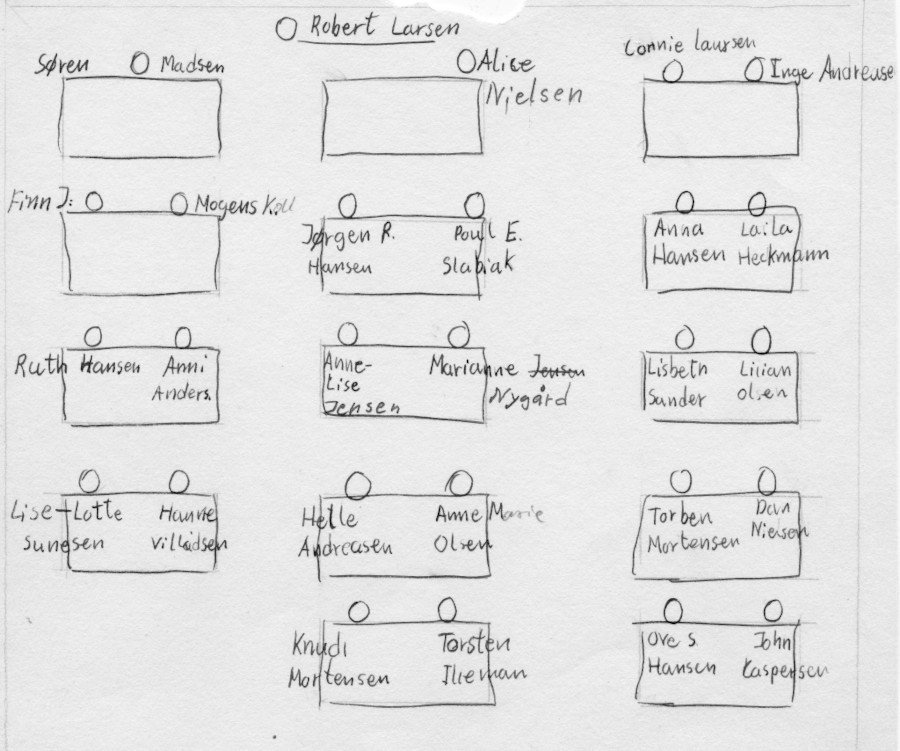 Robert Larsen
Søren Madsen
Alice
Nielsen
Connie Laursen
Inge Andreasen
Finn J:
Mogens Koll
Jørgen R.
Hansen
Poul E.
Slabiak
Anna
Hansen
Laila
Heckmann
Ruth Hansen
Anni
Anders.
Anne-
Lise
Jensen
Marianne Jensen
Nygård
Lisbeth
Sunder
Lilian
Olsen
Lise-Lotte
Sunesen
Hanne
Villadsen
Helle
Andreasen
Anne Marie
Olsen
Torben
Mortensen
Dan
Nielsen
Knud
Mortensen
Torsten
Ove S.
Hansen
John
Kaspersen